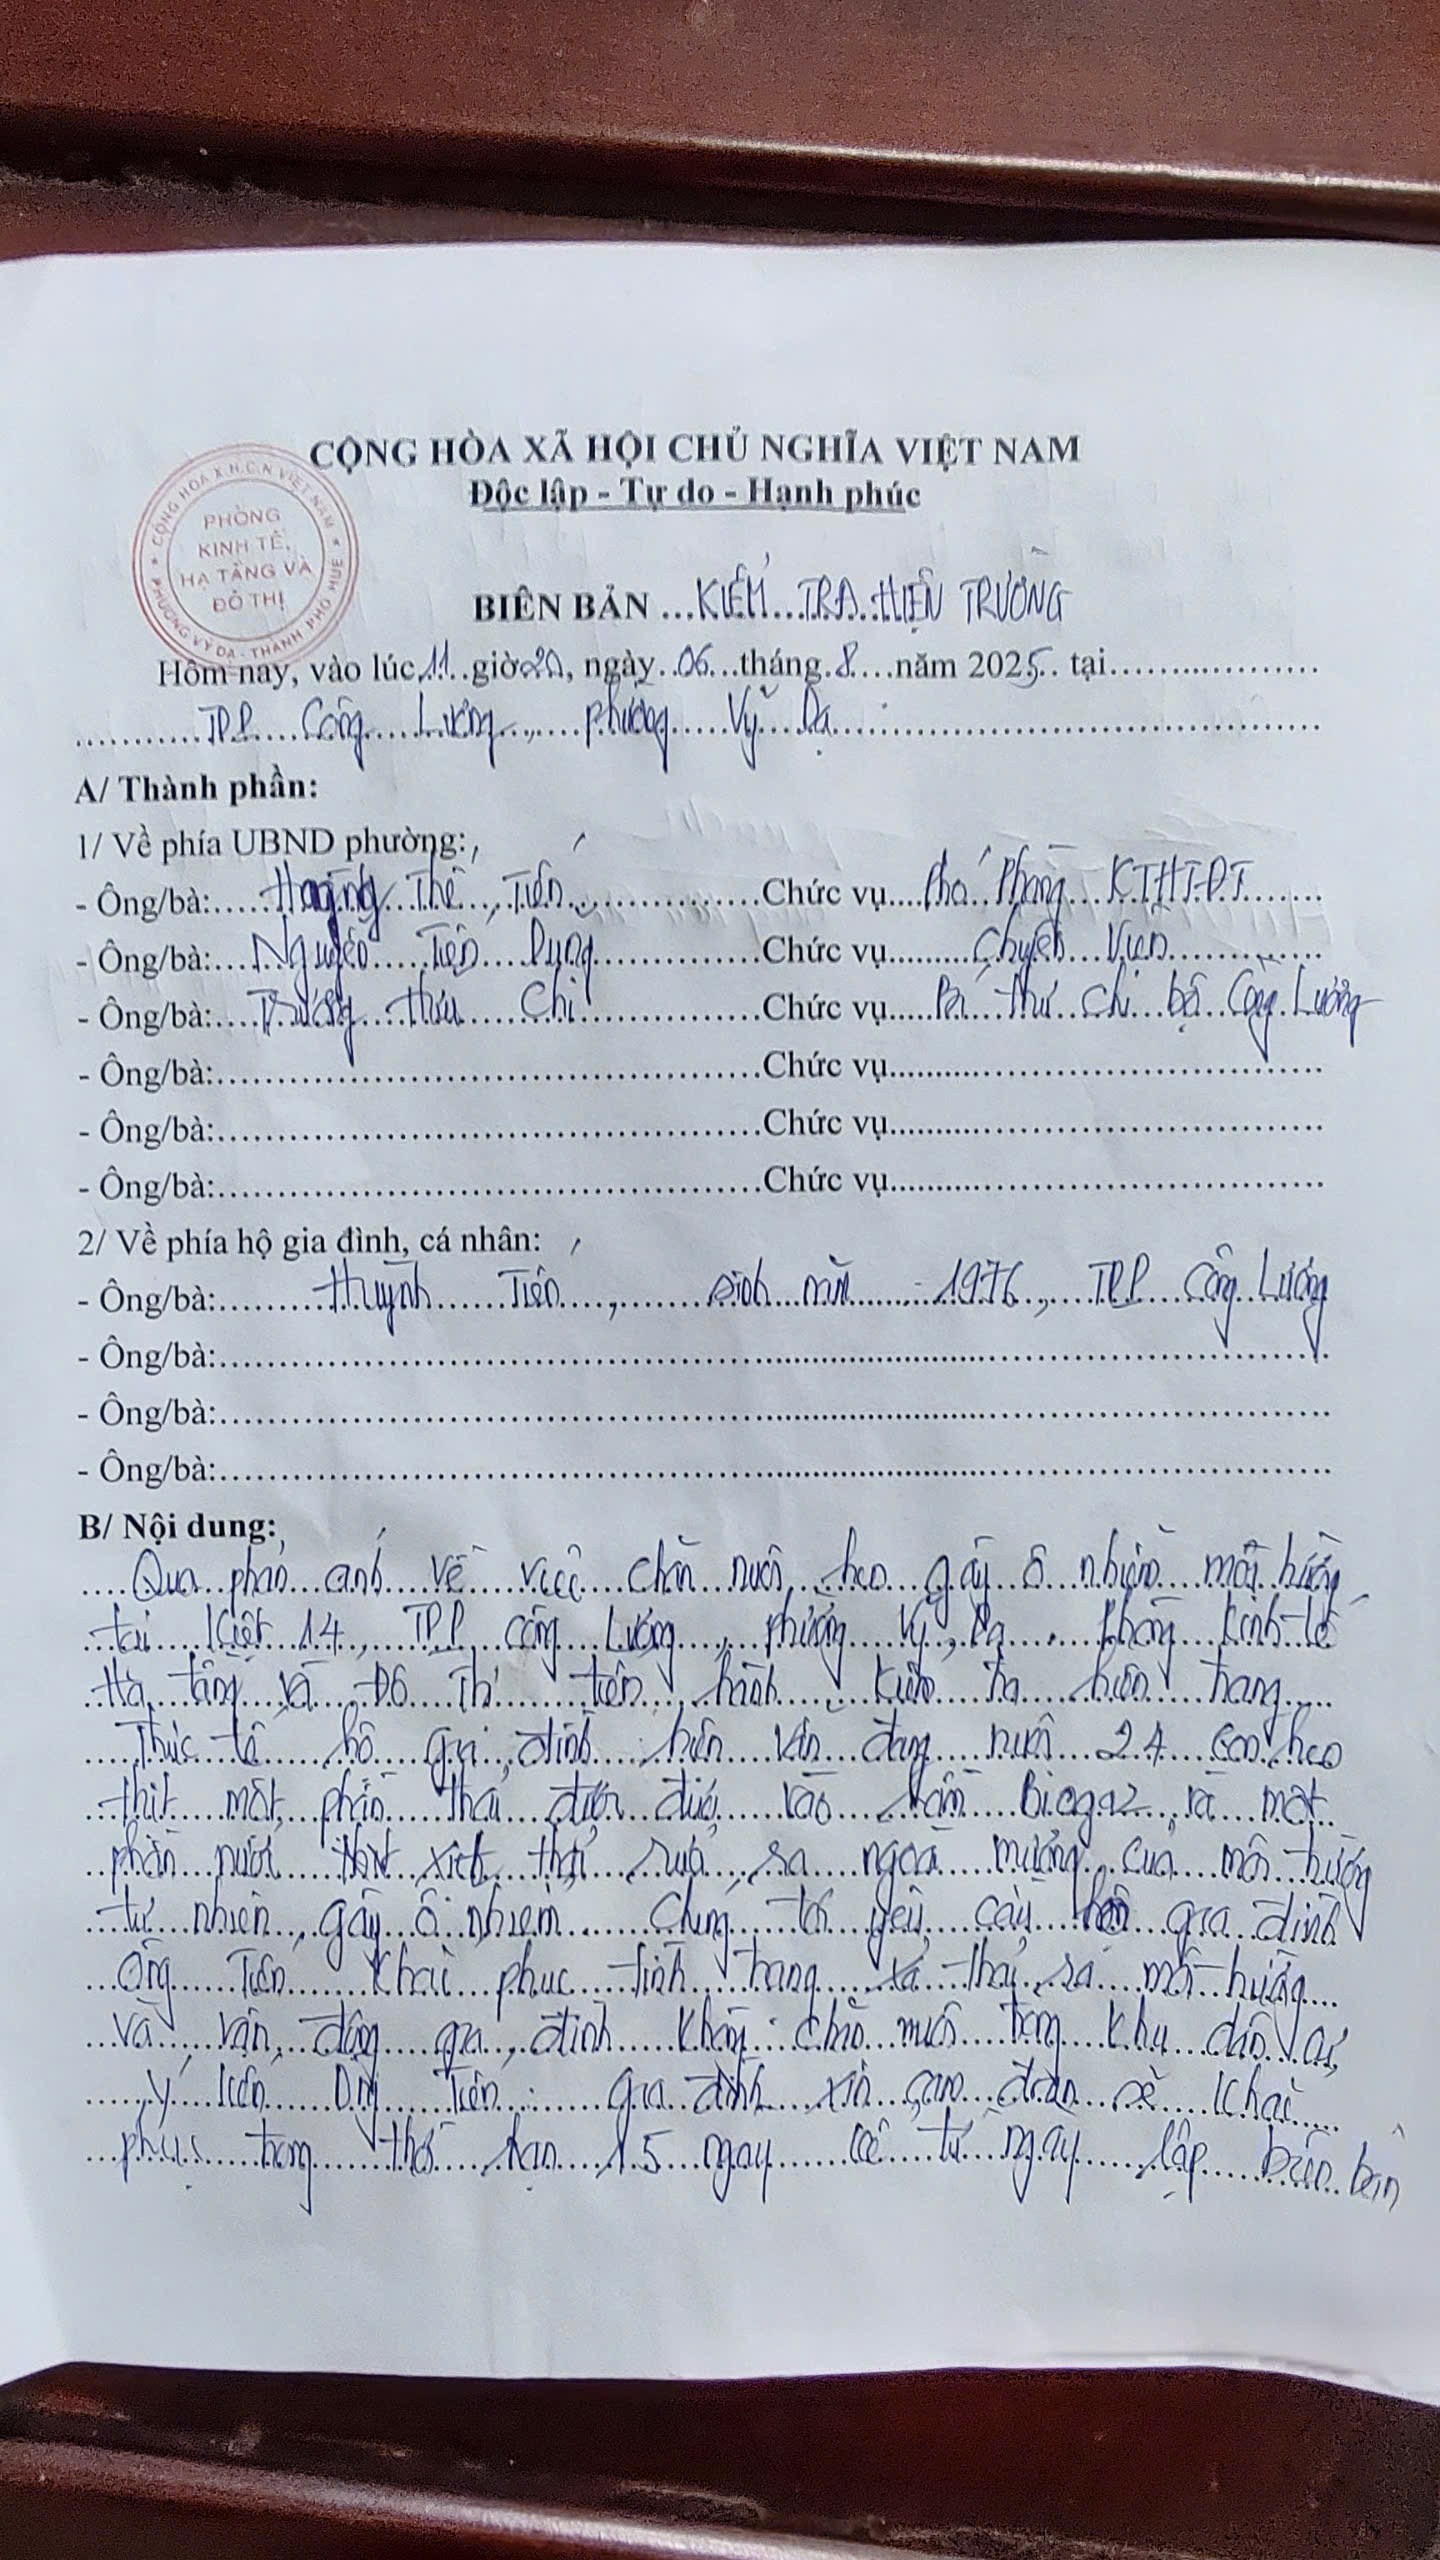 CỘNG HÒA XÃ HỘI CHỦ NGHĨA VIỆT NAM
Độc lập - Tự do - Hạnh phúc
CỘNG HÒA X.H.C.N VIỆT NAM
PHÒNG
KINH TẾ,
HẠ TẦNG VÀ
ĐÔ THỊ
PHƯỜNG VỸ DẠ - THÀNH PHỐ HUẾ
BIÊN BẢN KIỂM TRA HIỆN TRƯỜNG
Hôm nay, vào lúc 11 giờ 20, ngày 06 tháng 8 năm 2025 tại
TDP Công Lương, phường Vỹ Dạ
A/ Thành phần:
1/ Về phía UBND phường:
- Ông/bà: Thế Tiến Chức vụ Phó Phòng KTHTĐT
- Ông/bà: Nguyễn Tiến Dụng Chức vụ Chuyên Viên
- Ông/bà: Trương Hữu Chi Chức vụ Bí thư chi bộ Công Lương
- Ông/bà: Chức vụ
- Ông/bà: Chức vụ
- Ông/bà: Chức vụ
2/ Về phía hộ gia đình, cá nhân:
- Ông/bà: Huỳnh Tiến, sinh năm 1976, TDP Công Lương
- Ông/bà:
- Ông/bà:
- Ông/bà:
B/ Nội dung:
Qua phản ánh về việc chăn nuôi heo gây ô nhiễm môi trường
tại Kiệt 14, TDP Công Lương, phường Vỹ Dạ, Phòng Kinh tế
Hạ tầng và Đô Thị tiến hành kiểm tra hiện trạng
Thực tế hộ gia đình hiện vẫn đang nuôi 24 con heo
thịt một phần thải được đưa vào hầm Biogaz, và một
phần nước thải ra ngoài mương của môi trường
tự nhiên, gây ô nhiễm. Chúng tôi yêu cầu hộ gia đình
Ông Tiến khắc phục tình trạng xả thải ra môi trường
và vận động gia đình không chăn nuôi trong khu dân cư
Ý kiến Ông Tiến: gia đình xin cam đoan sẽ khắc
phục trong thời hạn 15 ngày kể từ ngày lập biên bản